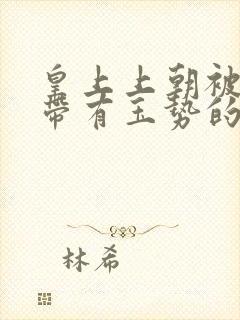 皇上上朝被
带有玉势的
林希